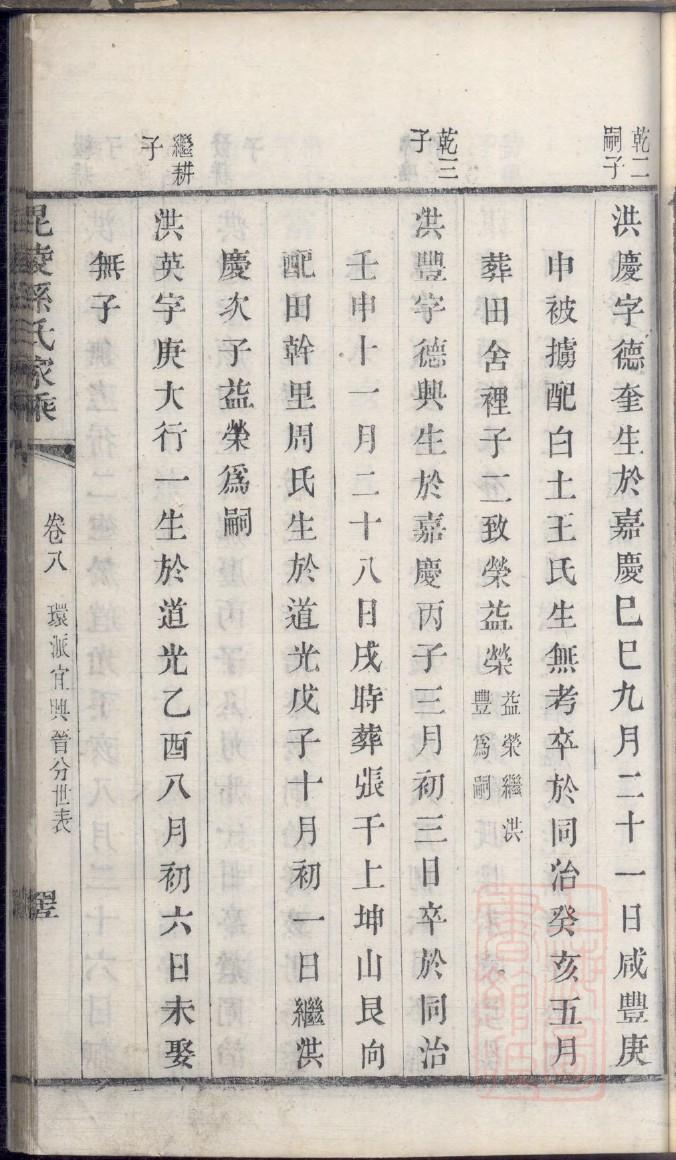 乾二
嗣子
洪慶字德奎生於嘉慶巳巳九月二十一日咸豐庚
申被擄配白土王氏生無考卒於同治癸亥五月
葬田舍裡子二致榮益榮益榮繼洪
豐爲嗣
乾三
子
洪豐字德興生於嘉慶丙子三月初三日卒於同治
壬申十一月二十八日戌時葬張干上坤山艮向
配田幹里周氏生於道光戊子十月初一日繼洪
慶次子益榮爲嗣
繼耕
子
洪英字庚大行一生於道光乙酉八月初六日未娶
無子
毘陵孫氏家乘
卷八
環派宜興晉分世表